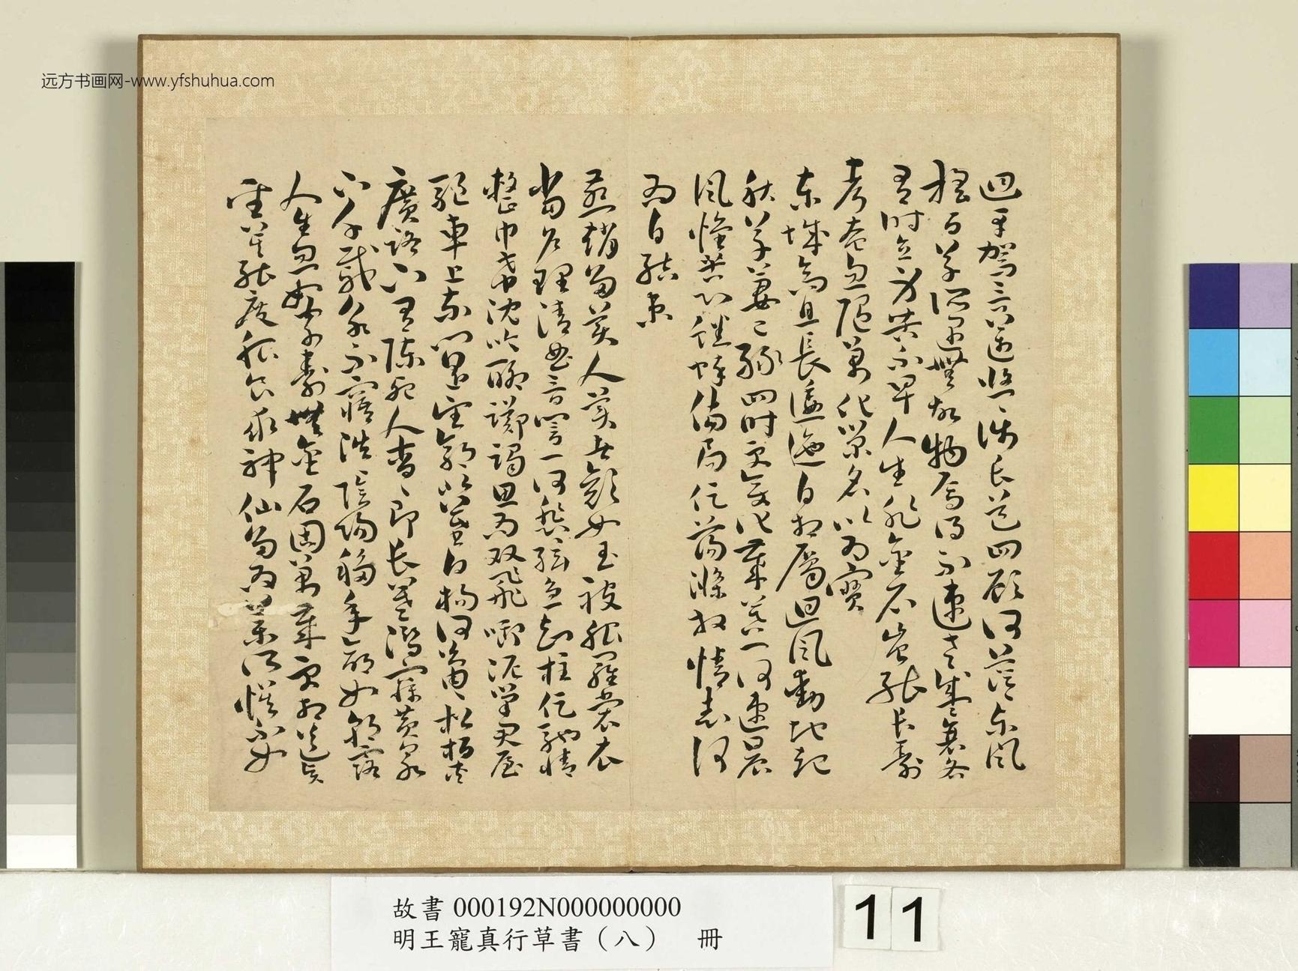 迴車駕言邁悠悠涉長道四顧何茫茫東風
搖百草所遇無故物焉得不速老盛衰各
有時立身苦不早人生非金石豈能長壽
考奄忽隨萬化榮名以為寶
東城高且長逶迤自相屬迴風動地起
秋草萋已綠四時更變化歲暮一何速晨
風懷苦心蟋蟀傷局促蕩滌放情志何
為自結束
燕趙多美人美者顏如玉被服羅裳衣
當戶理清曲音響一何悲絃急知柱促馳情
整巾帶沈吟聊躑躅思為双飛啣泥巢君屋
驅車上東門遙望郭北墓白楊何蕭蕭松柏夾
廣路下有陳死人杳杳即長暮潛寐黃泉
下千載永不寤浩浩陰陽移年命如朝露
人生忽如寄壽無金石固萬歲更相送賢
聖莫能度服食求神仙多為藥所誤不如
远方书画网-www.yfshuhua.com
故書 000192N000000000
明王寵真行草書（八） 冊
11